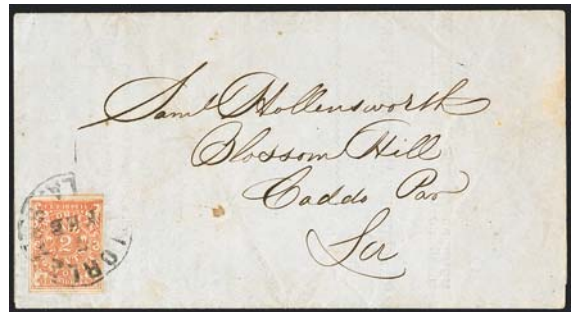 Saml Hollensworth
Blossom Hill
Caddo Par
La
LA.
FEB
2